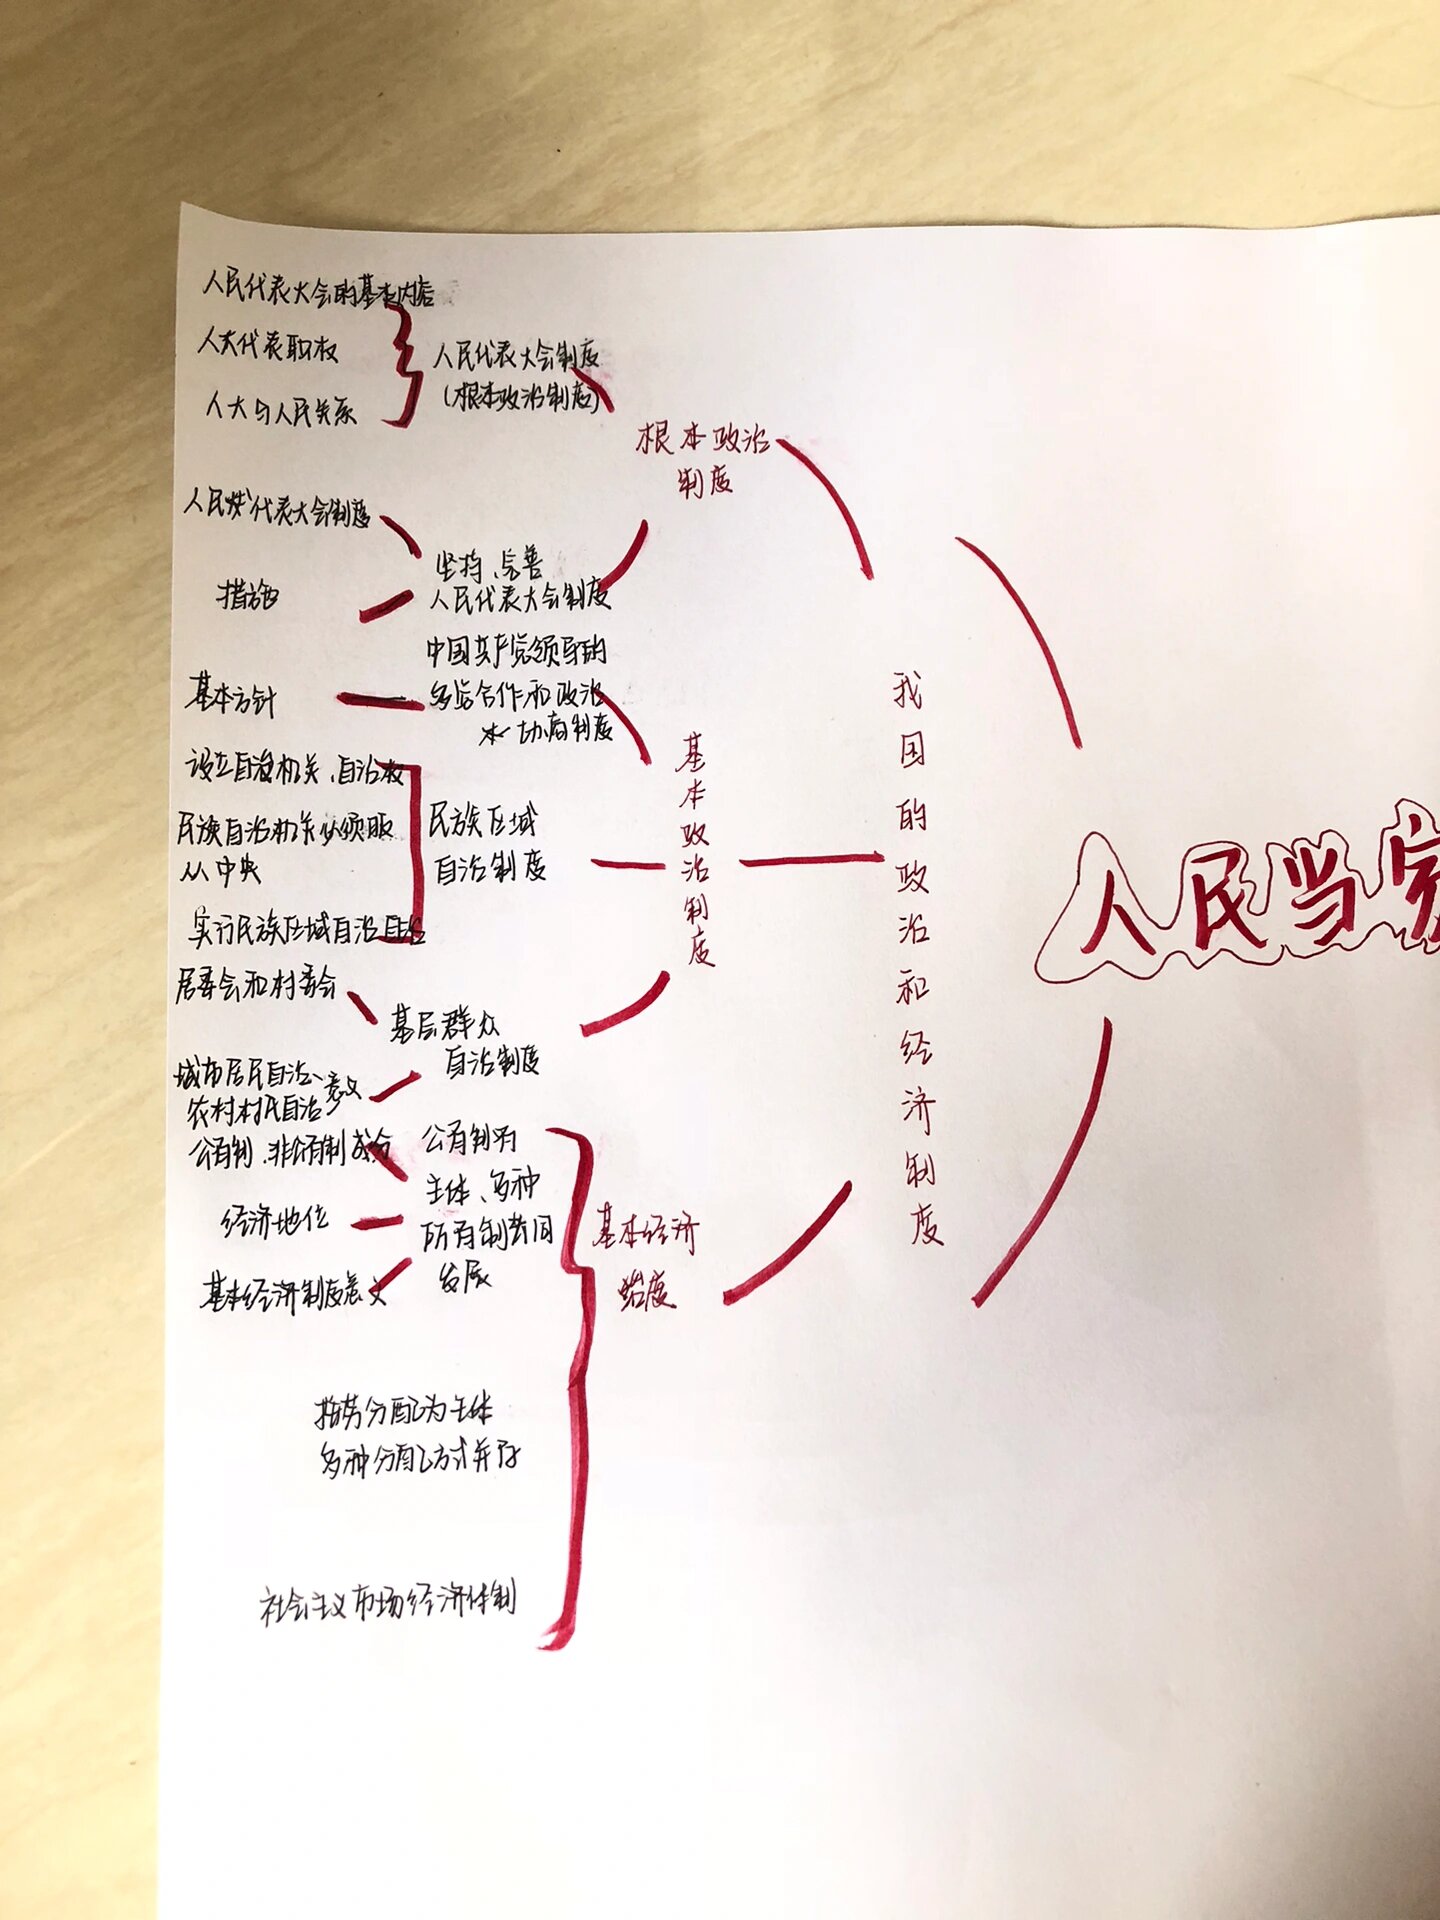 人民代表大会的基本内容
人大代表职权
人大与人民关系
人民代表大会制度
(根本政治制度)
根本政治
制度
人民 代表大会制度
措施
坚持、完善
人民代表大会制度
中国共产党领导的
多党合作和政治
协商制度
基本方针
设立自治机关、自治权
民族自治机关必须服
从中央
实行民族区域自治
民族区域
自治制度
居委会和村委会
城市居民自治、
农村村民自治
意义
基层群众
自治制度
基本政治制度
公有制、非公有制成分
经济地位
基本经济制度意义
公有制为
主体、多种
所有制共同
发展
基本经济
度
按劳分配为主体
多种分配方式并存
社会主义市场经济体制
我国的政治和经济制度
人民当家